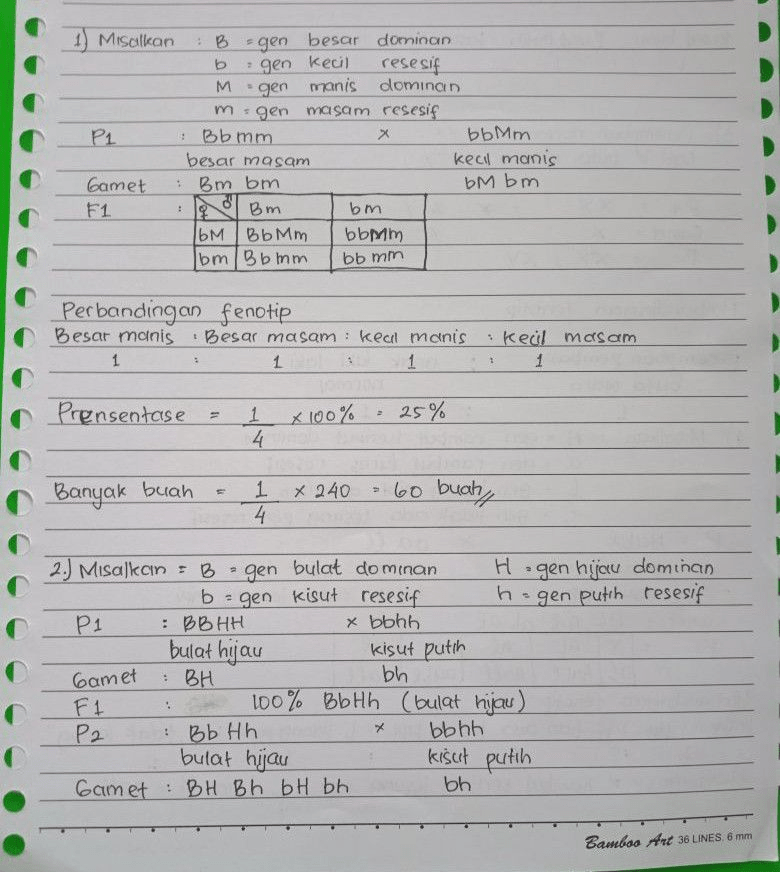 1) Misalkan : B = gen besar dominan
b = gen kecil resesif
M = gen manis dominan
m = gen masam resesif
P1 : Bbmm x bbMm
besar masam kecil manis
Gamet : Bm bm bM bm
F1 : ♀ ♂ Bm bm
bM BbMm bbMm
bm Bbmm bbmm
Perbandingan fenotip
Besar manis : Besar masam : kecil manis : kecil masam
1 : 1 : 1 : 1
Prensentase = 1/4 x 100% = 25%
Banyak buah = 1/4 x 240 = 60 buah//
2.) Misalkan = B = gen bulat dominan H = gen hijau dominan
b = gen kisut resesif h = gen putih resesif
P1 : BBHH x bbhh
bulat hijau kisut putih
Gamet : BH bh
F1 : 100% BbHh (bulat hijau)
P2 : BbHh x bbhh
bulat hijau kisut putih
Gamet : BH Bh bH bh bh
Bamboo Art 36 LINES. 6 mm